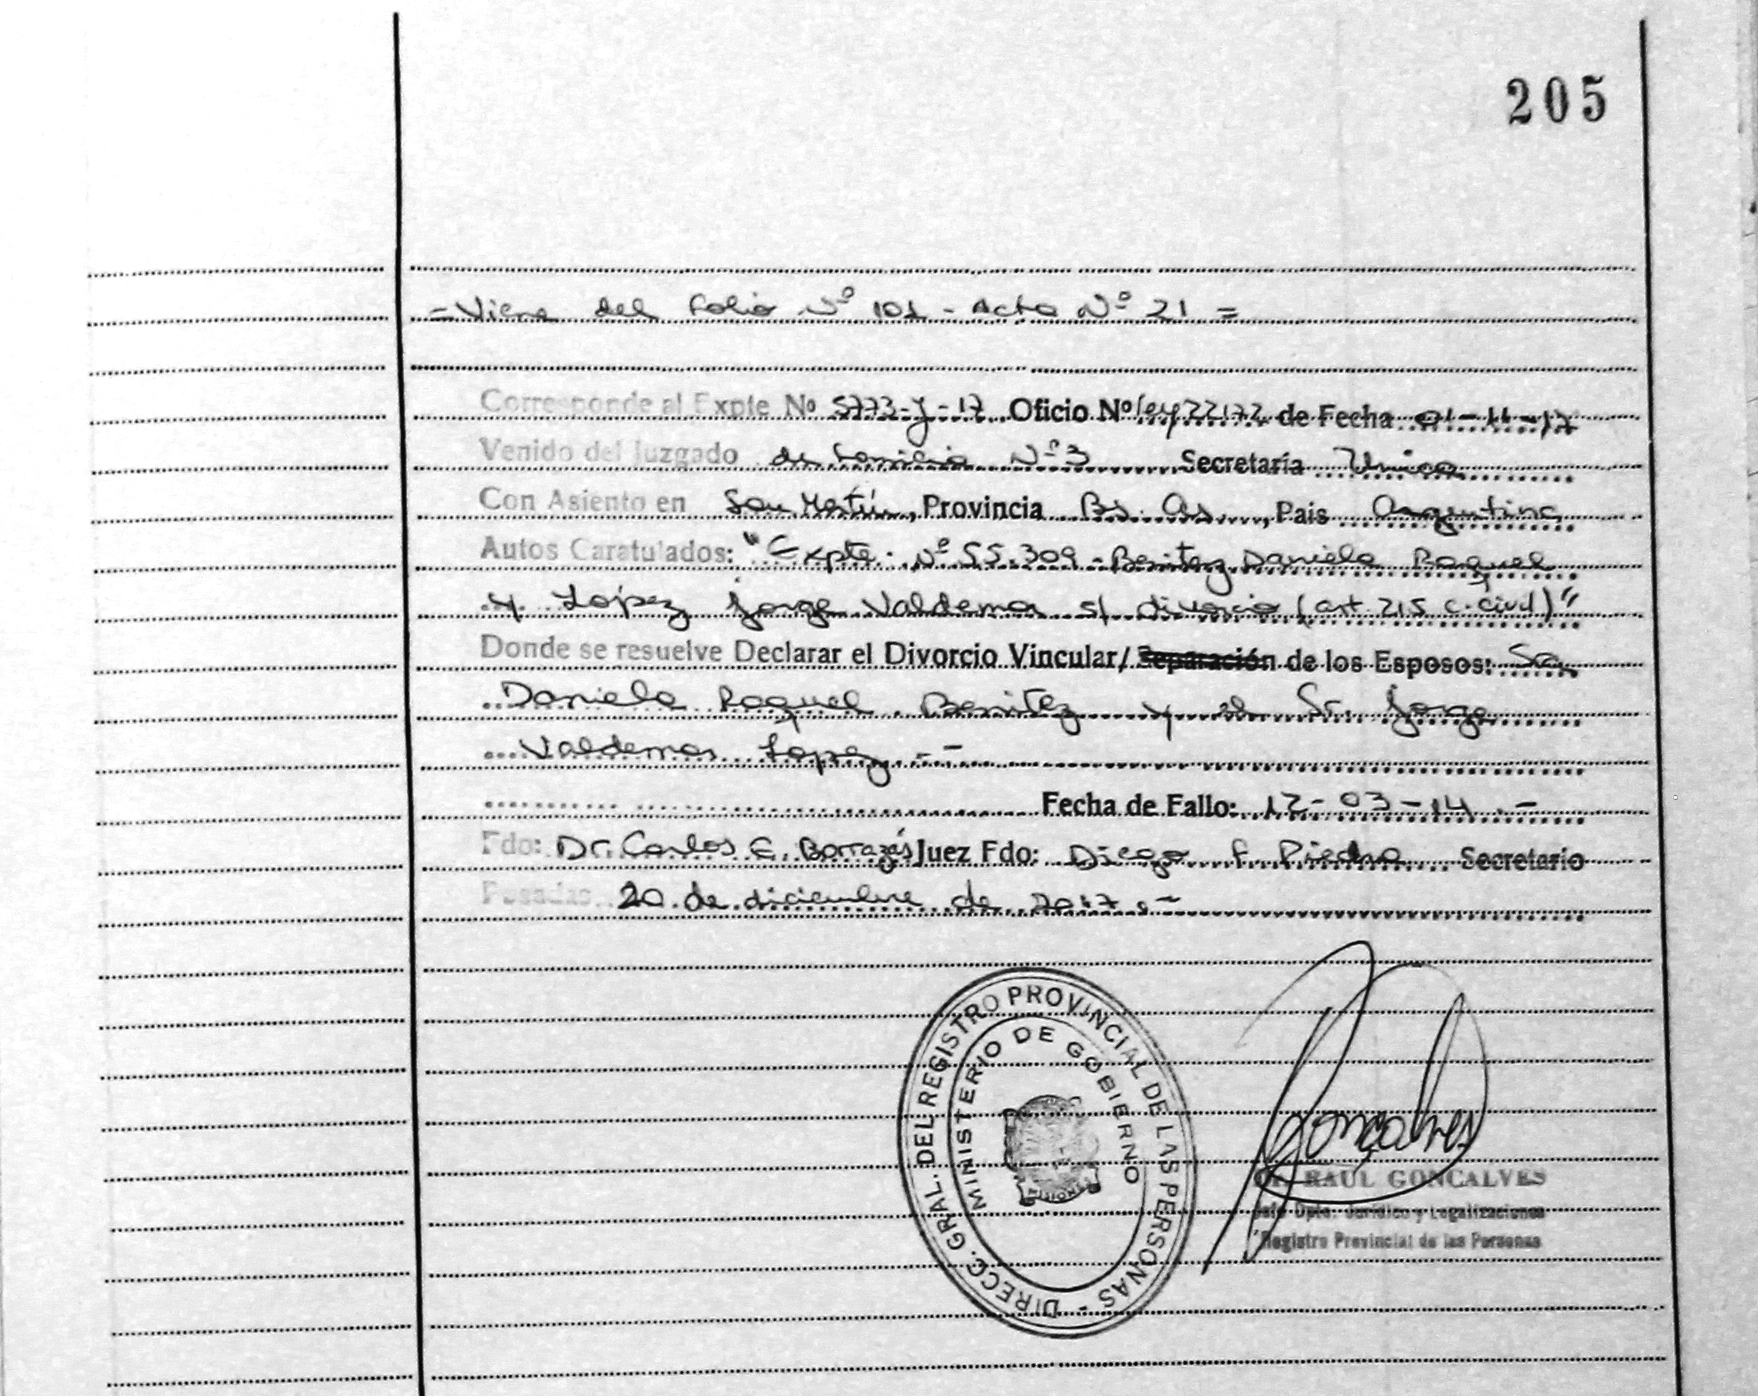 205
= Viene del Folio Nº 101 - Acta Nº 21 =
Corresponde al Expte Nº 5773-J-17 Oficio Nº ley 22172 de Fecha 01-11-17
Venido del Juzgado de Familia Nº 3 Secretaría Unica
Con Asiento en San Martín, Provincia Bs. As., Pais Argentina
Autos Caratulados: "Expte. Nº 55.309 - Benitez Daniela Raquel
y López Jorge Valdemar s/ divorcio (art. 215 c. civil)"
Donde se resuelve Declarar el Divorcio Vincular/ Separación de los Esposos: Sra.
Daniela Raquel Benitez y el Sr. Jorge
Valdemar Lopez.--
Fecha de Fallo: 12-03-14.-
Fdo: Dr. Carlos E. Juez Fdo: Diego F. Piedra Secretario
Posadas 20 de diciembre de 2017.-
DIRECC. GRAL. DEL REGISTRO PROVINCIAL DE LAS PERSONAS -
MINISTERIO DE GOBIERNO
MISIONES
Goncalves
Dr. RAUL GONCALVES
Jefe Dpto. Jurídico y Legalizaciones
Registro Provincial de las Personas